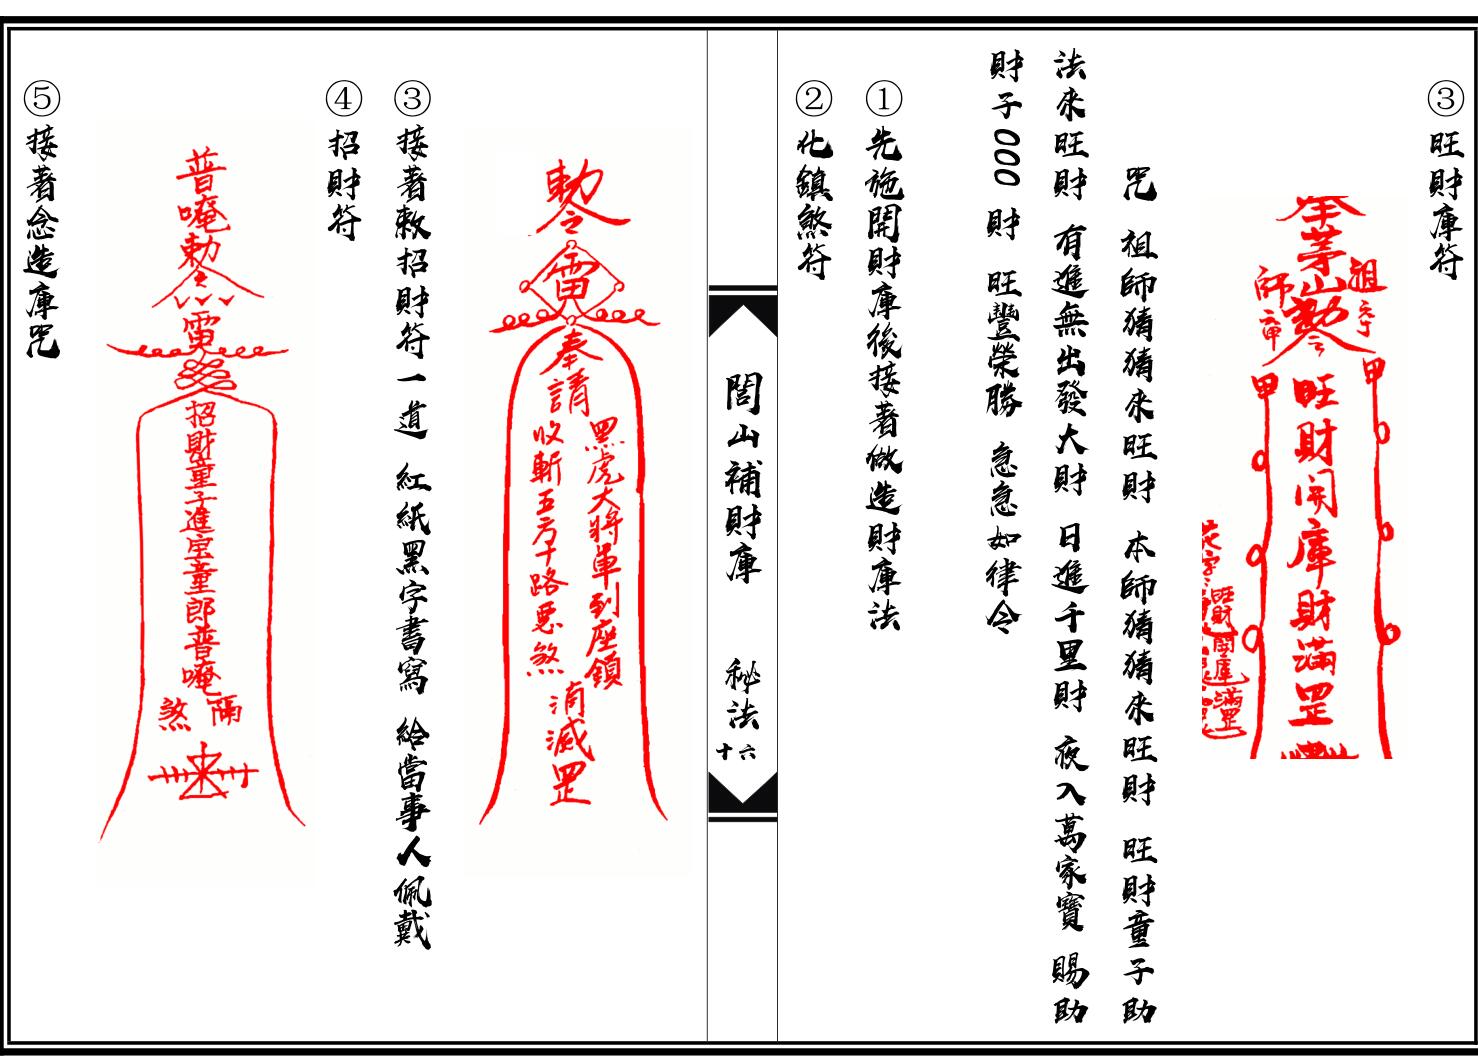 ③旺財庫符
全茅山勅令
祖師
旺財開庫財滿罡
旺財開庫滿罡
咒 祖師猜猜來旺財 本師猜猜來旺財 旺財童子助
法來旺財 有進無出發大財 日進千里財 夜入萬家寶 賜助
財子000 財 旺豐榮勝 急急如律令
①先施開財庫後接著做造財庫法
②化鎮煞符
閭山補財庫 秘法
十六
勅令
雷
奉請
黑虎大將軍到座鎮
收斬五方十路惡煞
消滅罡
③接著敕招財符一道 紅紙黑字書寫 給當事人佩戴
④招財符
普唵勅令
雷
招財童子進宝童郎普唵
隔煞
⑤接著念造庫咒